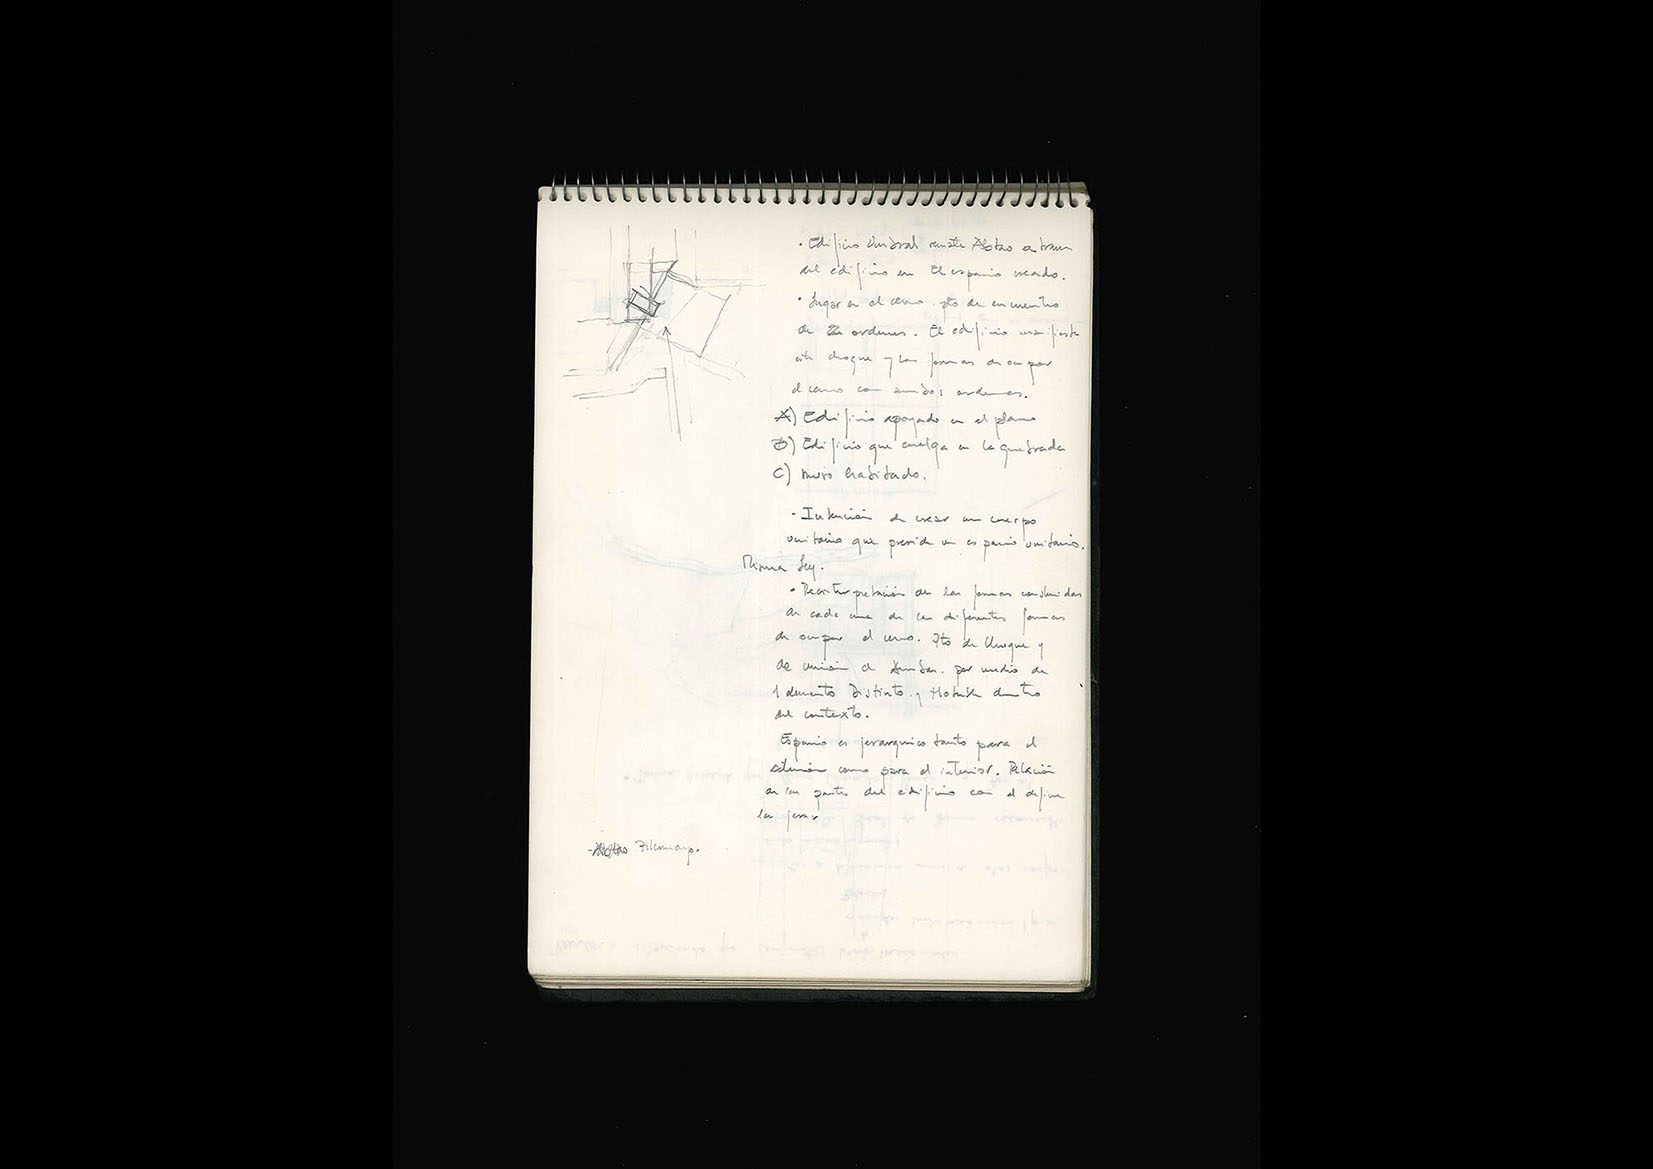 · Edificio Umbral remate Abtao
del edificio en El espacio creado.
· Lugar en el cerro pto de encuentro
de 2 ordenes. El edificio manifiesta
este choque y las formas de ocupar
el cerro con ambos ordenes.
A) Edificio apoyado en el plano
B) Edificio que cuelga en la quebrada
C) Muro habitado.
- Intención de crear un cuerpo
unitario que preside un espacio unitario.
Misma Ley.
· Reinterpretación de las formas construidas
de cada una de las diferentes formas
de ocupar el cerro. Pto de choque y
de unión de Ambas. por medio de
1 elemento Distinto y Notable dentro
del contexto.
Espacio es jerarquico tanto para el
exterior como para el interior. Relación
de las partes del edificio con el define
la jerar
- Abtao Pilcomayo.